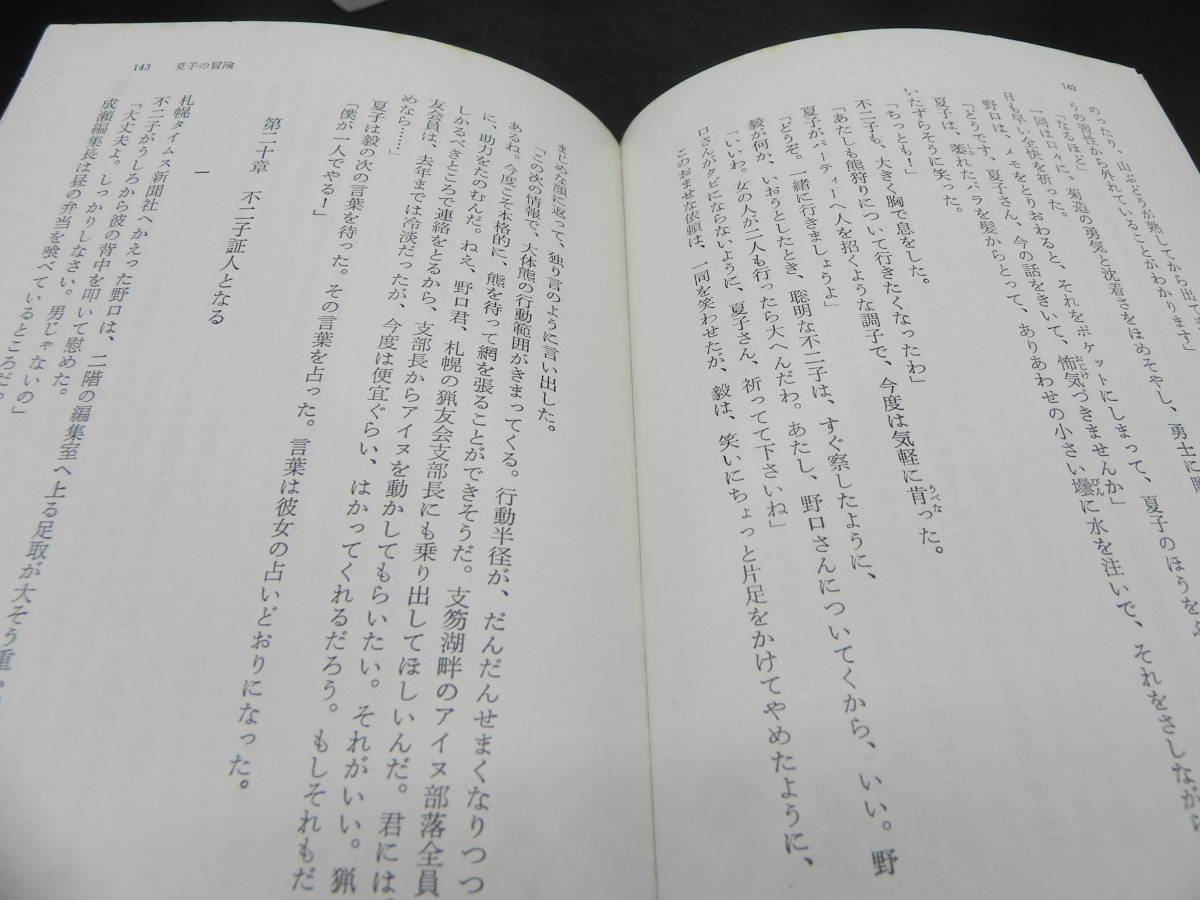 142
のったり、山ぶどうが熟してから出てき
うの習性から外れていることがわかります」
「なるほど」
一同は口々に、菊造の勇気と沈着さをほめそやし、勇士に
日も早い全快を祈った。
野口は、メモをとりおわると、それをポケットにしまって、夏子のほうを
「どうです、夏子さん、今の話をきいて、怖気づきませんか」
おじけ
夏子は、萎れたバラを髪からとって、ありあわせの小さい壜に水を注いで、それをさしながら
しお
びん
いたずらそうに笑った。
「ちっとも!」
不二子も、大きく胸で息をした。
「あたしも熊狩りについて行きたくなったわ」
夏子がパーティーへ人を招くような調子で、今度は気軽に肯った。
うべな
「どうぞ。一緒に行きましょうよ」
毅が何か、いおうとしたとき、聡明な不二子は、すぐ察したように、
「いいわ。女の人が二人も行ったら大へんだわ。あたし、野口さんについてくから、いい。野
口さんがクビにならないように、夏子さん、祈ってて下さいね」
このおませな依頼は、一同を笑わせたが、毅は、笑いにちょっと片足をかけてやめたように、
143 夏子の冒険
まじめな顔に返って、独り言のように言い出した。
「この次の情報で、大体熊の行動範囲がきまってくる。行動半径が、だんだんせまくなりつつ
あるね。今度こそ本格的に、熊を待って網を張ることができそうだ。支笏湖畔のアイヌ部落全員
に、助力をたのむんだ。ねえ、野口君、札幌の猟友会支部長にも乗り出してほしいんだ。君には
しかるべきところで連絡をとるから、支部長からアイヌを動かしてもらいたい。それがいい。猟
友会員は、去年までは冷淡だったが、今度は便宜ぐらい、はかってくれるだろう。もしそれもだ
めなら……」
夏子は毅の次の言葉を待った。その言葉を占った。言葉は彼女の占いどおりになった。
「僕が一人でやる!」
第二十章 不二子証人となる
一
札幌タイムス新聞社へかえった野口は、二階の編集室へ上る足取が大そう重
不二子がうしろから彼の背中を叩いて慰めた。
「大丈夫よ。しっかりしなさい。男じゃないの」
成瀬編集長は昼の弁当を喰べているところだ。